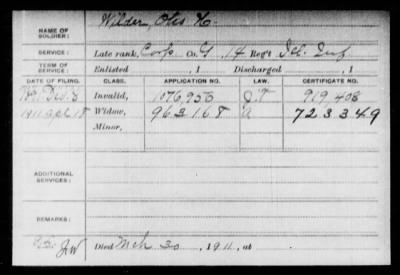 NAME OF SOLDIER: Wilder, Otis H.
SERVICE: Late rank, Corp. Co. G, 14 Reg't Ill. Inf
TERM OF SERVICE: Enlisted , 1 Discharged , 1
DATE OF FILING. CLASS. APPLICATION NO. LAW. CERTIFICATE NO.
Invalid, 1076,956 919,408
1911 Apl 18 Widow, 963168 a 723349
Minor,
ADDITIONAL SERVICES:
REMARKS:
Died Mch 30, 1911, at